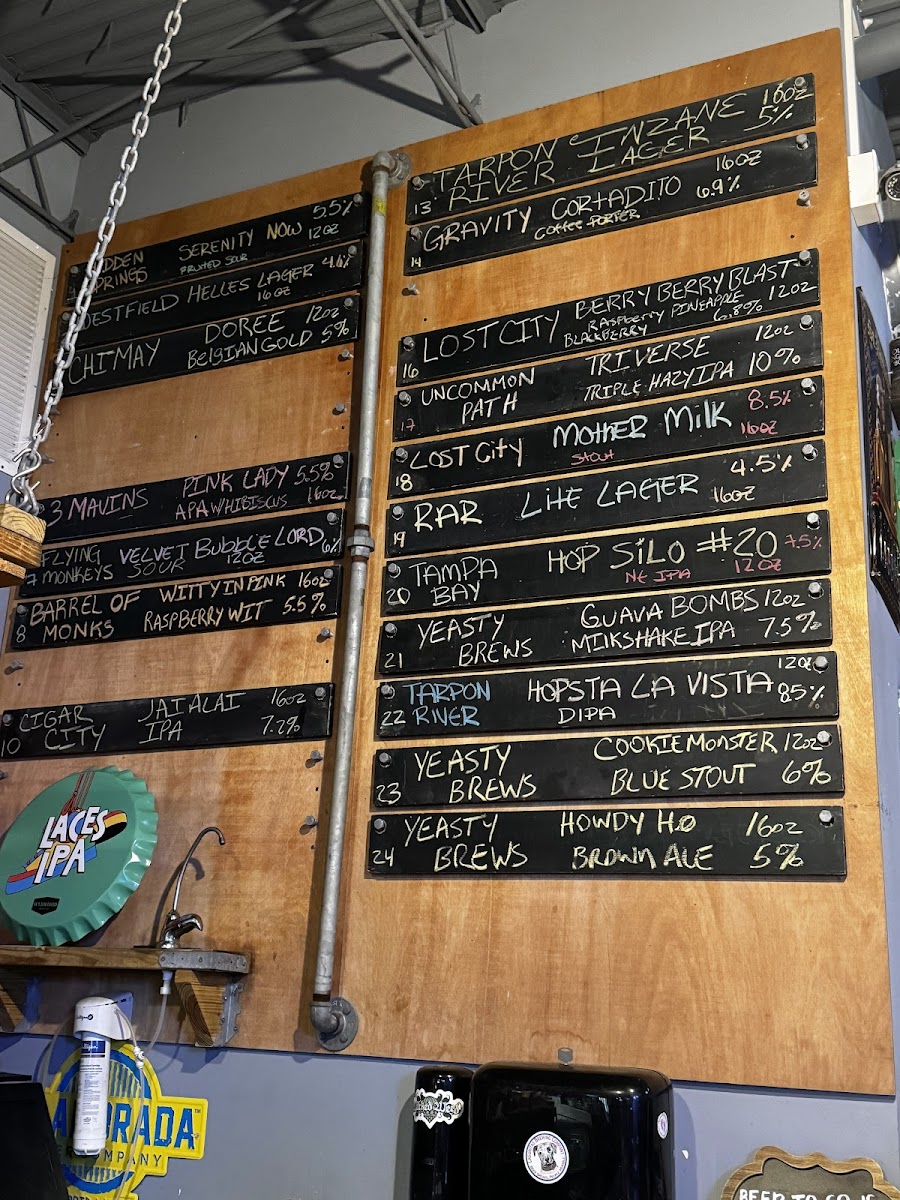 SERENITY NOW 5.5%
FRUITED SOUR 12OZ
HELLES LAGER 4.6%
16OZ
CHIMAY DOREE 12oz
BELGIAN GOLD 5%
3 MAVINS PINK LADY 5.5%
APA W/HIBISCUS 16oz
FLYING VELVET BUBBLE LORD 6%
7 MONKEYS SOUR 12OZ
BARREL OF WITTY IN PINK 16oz
8 MONKS RASPBERRY WIT 5.5%
CIGAR JAI ALAI 16oz
10 CITY IPA 7.2%
TARPON INZANE 16OZ
13 RIVER LAGER 5%
GRAVITY CORTADITO 16OZ
14 COFFEE PORTER 6.9%
LOST CITY BERRY BERRY BLAST
RASPBERRY PINEAPPLE 12oz
16 BLACKBERRY 6.8%
UNCOMMON TRIVERSE 12oz
17 PATH TRIPLE HAZY IPA 10%
LOST CITY MOTHER MILK 8.5%
18 STOUT 16OZ
RAR LITE LAGER 4.5%
19 16oz
TAMPA HOP SILO #20 7.5%
20 BAY NE IPA 12OZ
YEASTY GUAVA BOMBS 12oz
21 BREWS MILKSHAKE IPA 7.5%
TARPON HOPSTA LA VISTA 12OZ
22 RIVER DIPA 8.5%
YEASTY COOKIE MONSTER 12oz
23 BREWS BLUE STOUT 6%
YEASTY HOWDY HO 16oz
24 BREWS BROWN ALE 5%
LACES
IPA
COMPANY
BEER TO GO